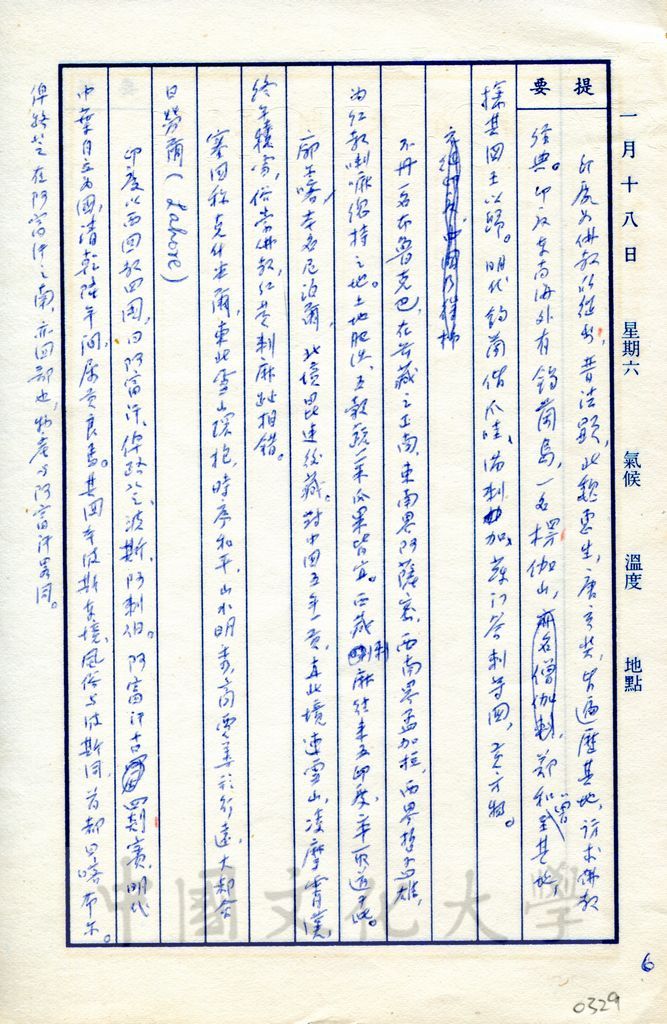 一月十八日 星期六 氣候 溫度 地點
提要
印度為佛教所從出，昔法顯，北魏惠生，唐玄奘，皆遍歷其地，訪求佛教
經典。印度東南海外有錫蘭島，一名楞伽山，鄭和曾至其地，
擒其國王以歸。明代錫蘭偕爪哇、滿剌加、蘇門答剌等國，貢方物。
不丹一名布魯克巴，在前藏之正南，東南界阿薩密，西南界孟加拉，西界哲孟雄，
為紅教喇嘛總持之地。土地肥沃，五穀蔬菜瓜果皆宜。西藏喇麻往來五印度，市取道于此。
廓爾喀，本名尼泊爾，北境毘連後藏。對中國五年一貢，其北境連雪山，凌摩霄漢，
終年積雪，俗崇佛教，紅黃剌麻趾相錯。
塞因稱克什米爾，東北雪山環抱，時序和平，山水明秀，商賈善於行遠，大都會
曰勞爾(Lahore)
印度以西回教四國，曰阿富汗、俾路芝、波斯、阿剌伯。阿富汗古罽賓，明代
中葉自立為國，清乾隆年間，屢貢良馬。其國本波斯東境，風俗與波斯同，首都曰喀布尔。
俾路芝在阿富汗之南，亦回部也，物產與阿富汗畧同。
中國文化大學
6
0329